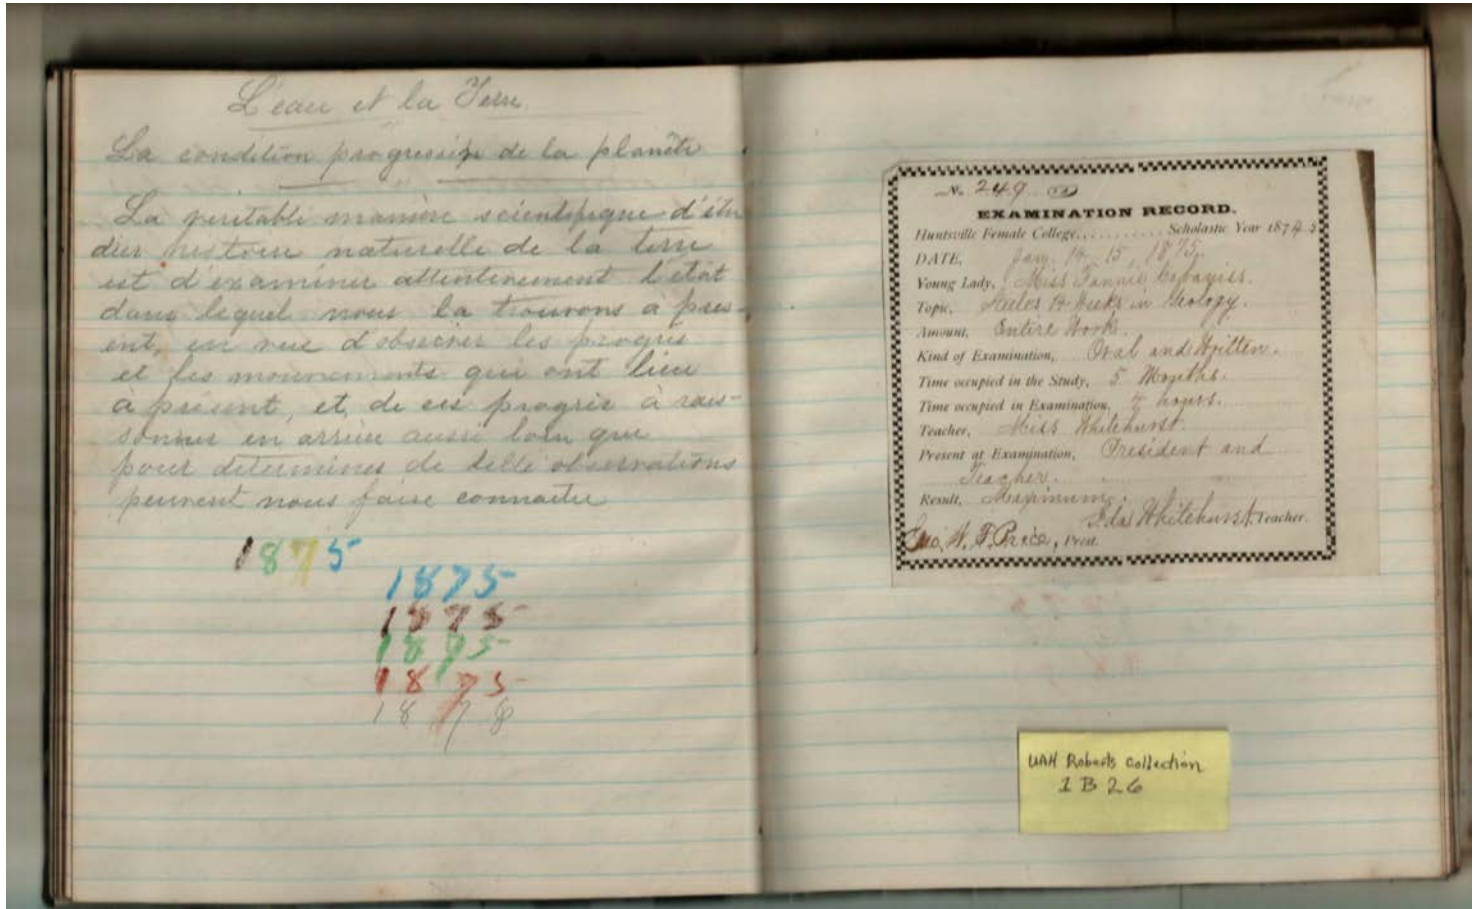 L'eau et la Terre
La condition progressive de la planète
La veritable manière scientifique d'étu
dier histoire naturelle de la terre
est d'examiner attentivement l'etat
dans lequel nous la trouvons à pres-
ent, en vue d'observer les progres
et les mouvements qui ont lieu
à présent, et, de ces progrès à rais-
sonner en arrière aussi loin que
pour determiner de telle observations
peuvent nous faire connaitre
1875
1875
1875
1875
1875
1878
No. 249
EXAMINATION RECORD.
Huntsville Female College, Scholastic Year 1874-5
DATE, Jan. 14, 15, 1875.
Young Lady, Miss Fannie
Topic, Steeles 14 Weeks in Geology.
Amount, Entire Work.
Kind of Examination, Oral and Written.
Time occupied in the Study, 5 Months.
Time occupied in Examination, 4 hours.
Teacher, Miss Whitehurst.
Present at Examination, President and
Teacher.
Result, Maximum.
Ida Whitehurst, Teacher.
Geo. W. F. Price, Prest.
UAH Roberts Collection
1 B 26